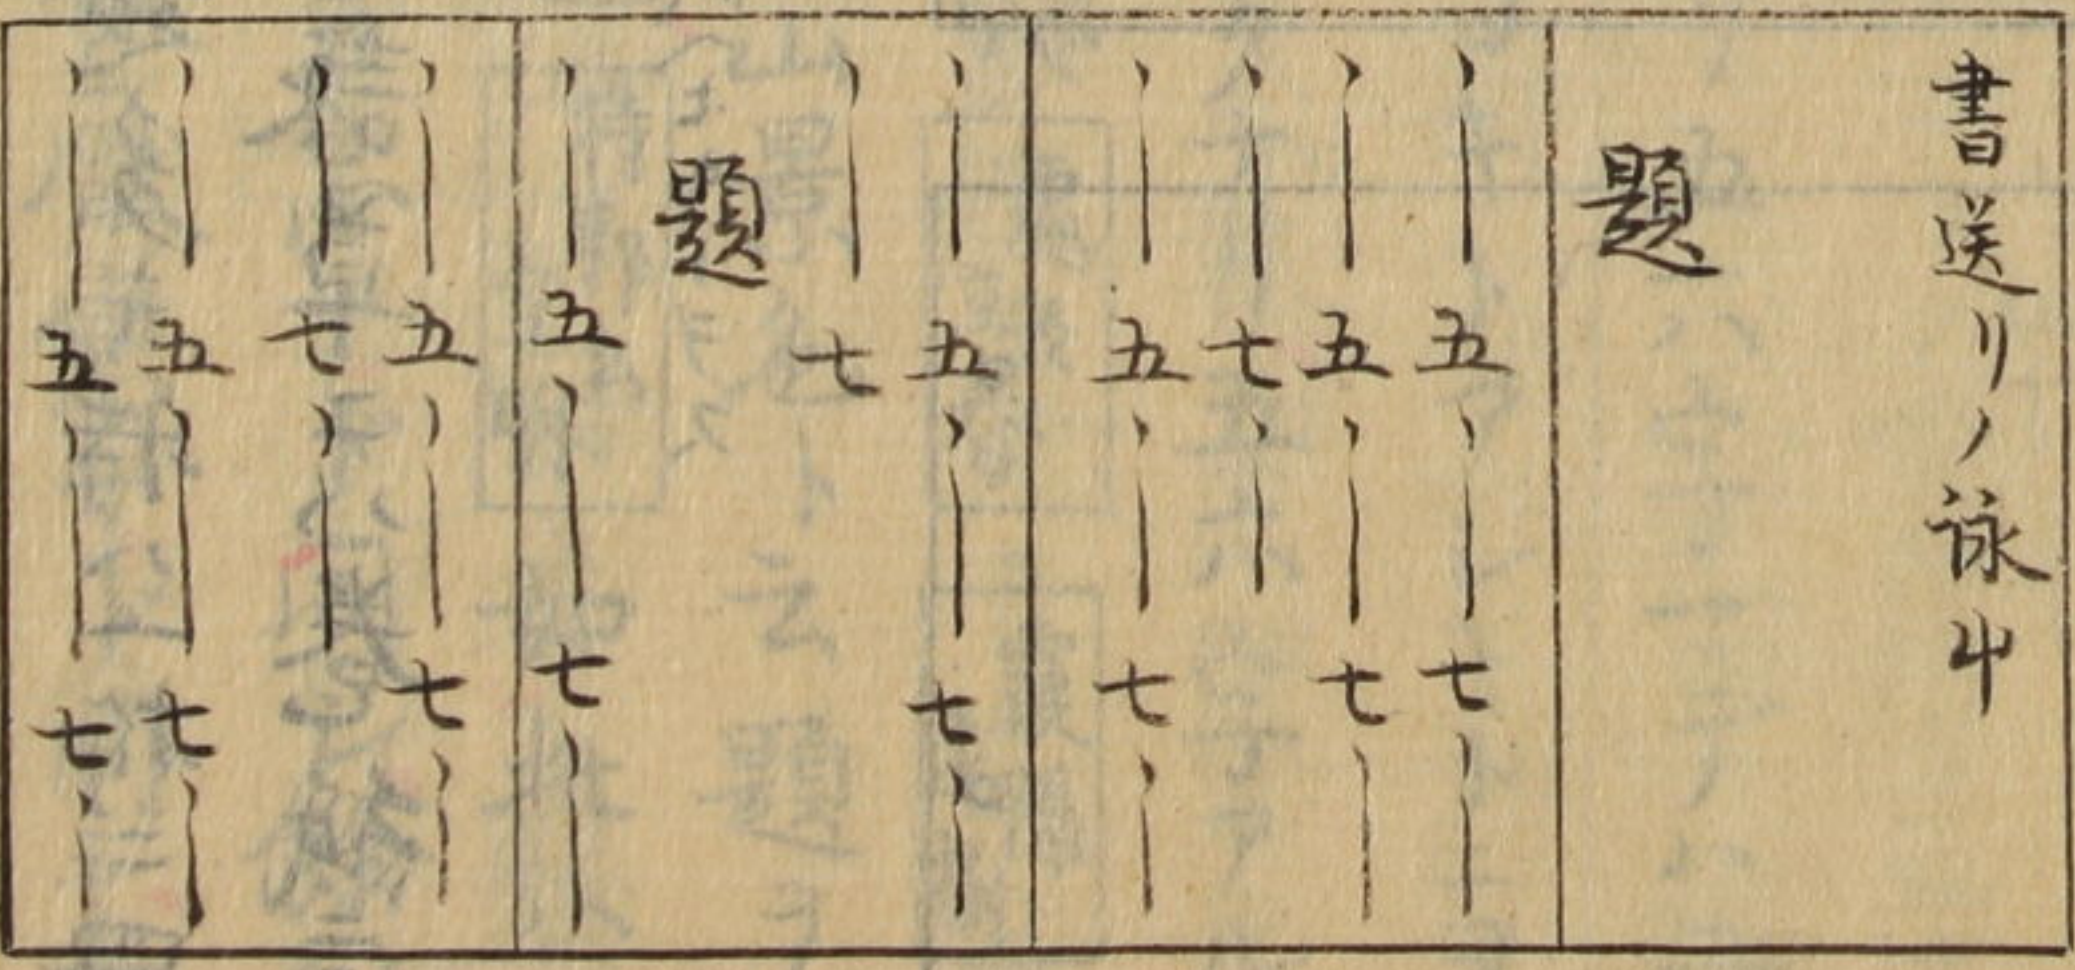 書送リノ詠屮
題
五 七
五 七
七
五 七
五 七
七
題
五 七
五 七
七
五 七
五 七